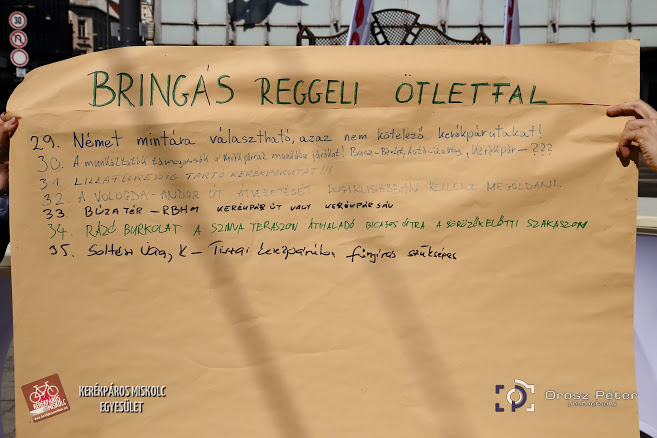 30
BRINGÁS REGGELI ÖTLETFAL
29. Német mintára választható, azaz nem kötelező kerékpárutakat!
30. A munkáltatók támogassák a kerékpárral munkába járókat! Busz-Bérlet, Autó-üzemag, Kerékpár-???
31. LILLAFÜREDIG TARTÓ KERÉKPÁRUTAT!!!
32. A VOLOGDA-ANDOR ÚT ÁTVEZETÉSÉT LOGIKUSABBAN KELLENE MEGOLDANI.
33 BÚZA TÉR - RBHM KERÉKPÁRÚT VAGY KERÉKPÁRSÁV
34. RÁZÓ BURKOLAT A SZINVA TERASZON ÁTHALADÓ BICAJOS ÚTRA A SÖRÖZŐK ELŐTTI SZAKASZON
35. K - Tiszai kerékpárútba fűnyírás szükséges
KERÉKPÁROS MISKOLC
EGYESÜLET
KERÉKPÁROS
MISKOLC
Orosz Péter